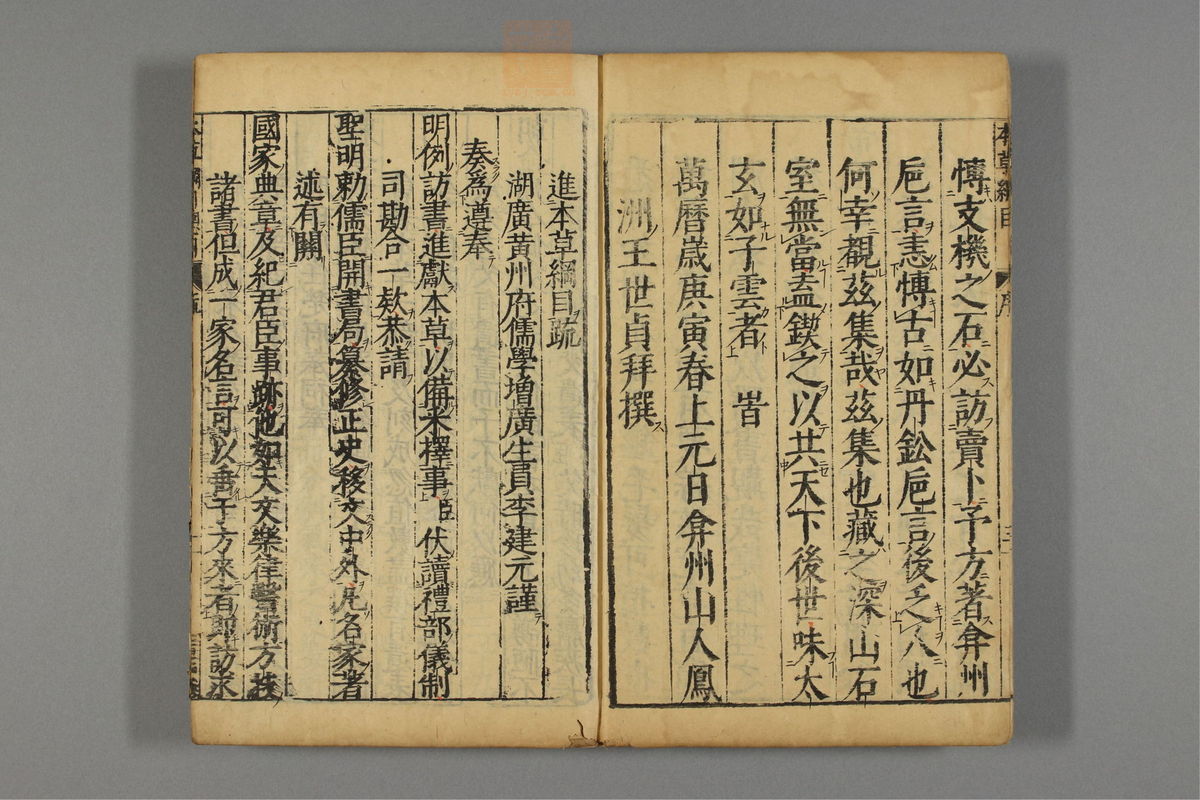 本草綱目 序
愽支機之石必訪賣卜予方著弇州
巵言恚愽古如丹鈆巵言後乏人也
何幸覩茲集哉茲集也藏之深山石
室無當盍鍥之以共天下後世味太
玄如子雲者 旹
萬曆歲庚寅春上元日弇州山人鳳
洲王世貞拜撰
進本草綱目疏
湖廣黄州府儒學增廣生員李建元謹
奏爲遵奉
明例訪書進獻本草以備采擇事臣伏讀禮部儀制
司勘合一欵恭請
聖明勅儒臣開書局纂修正史移文中外凡名家著
述有關
國家典章及紀君臣事跡他如天文樂律醫術方技
諸書但成一家名言可以垂于方來者即訪求